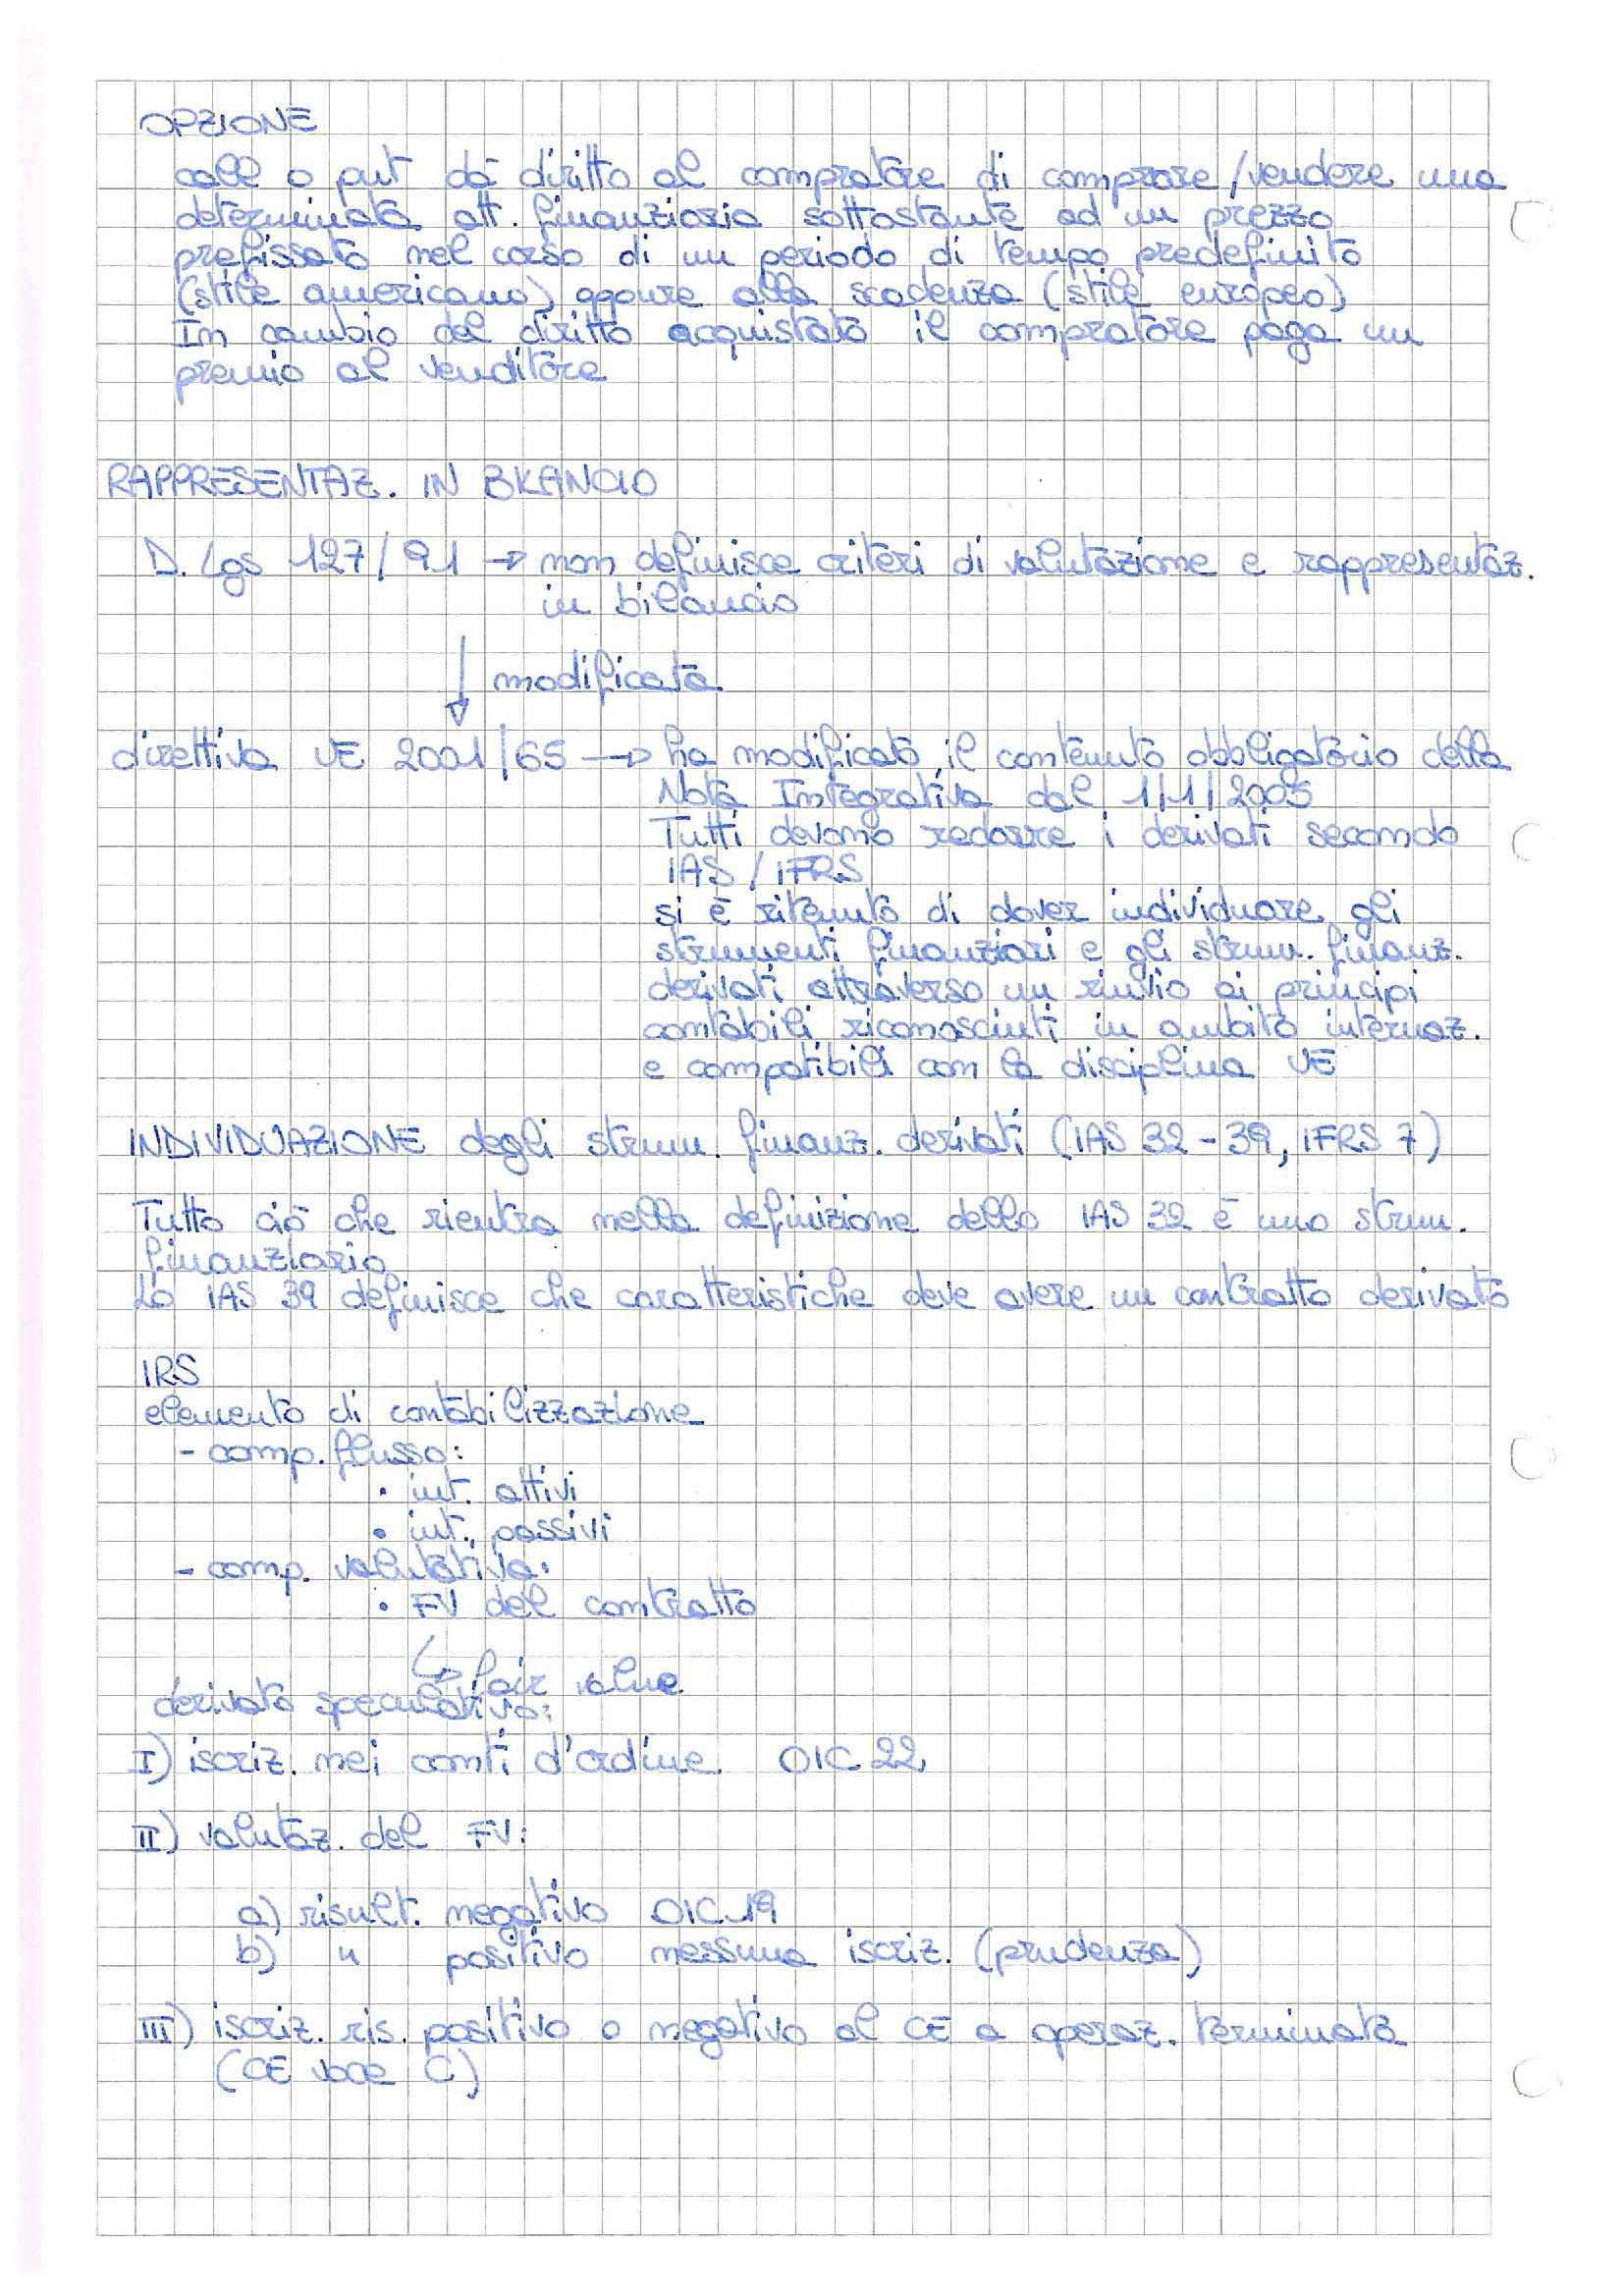 OPZIONE
call o put dà diritto al compratore di comprare/vendere una
determinata att. finanziaria sottostante ad un prezzo
prefissato nel corso di un periodo di tempo predefinito
(stile americano) oppure alla scadenza (stile europeo)
In cambio del diritto acquistato il compratore paga un
premio al venditore
RAPPRESENTAZ. IN BILANCIO
D. Lgs 127/91 → non definisce criteri di valutazione e rappresentaz.
in bilancio
↓ modificata
direttiva UE 2001/65 → ha modificato il contenuto obbligatorio della
Nota Integrativa dal 1/1/2005
Tutti devono redarre i derivati secondo
IAS / IFRS
si è ritenuto di dover individuare gli
strumenti finanziari e gli strum. finanz.
derivati attraverso un rinvio ai principi
contabili riconosciuti in ambito internaz.
e compatibili con la disciplina UE
INDIVIDUAZIONE degli strum. finanz. derivati (IAS 32 - 39, IFRS 7)
Tutto ciò che rientra nella definizione dello IAS 32 è uno strum.
finanziario
Lo IAS 39 definisce che caratteristiche deve avere un contratto derivato
IRS
elemento di contabilizzazione
- comp. flusso:
• int. attivi
• int. passivi
- comp. valutativa:
• FV del contratto
↳ fair value
derivato speculativo:
I) iscriz. nei conti d'ordine OIC 22
II) valutaz. del FV:
a) risult. negativo OIC 19
b) " positivo nessuna iscriz. (prudenza)
III) iscriz. ris. positivo o negativo al CE a operaz. terminata
(CE voce C)